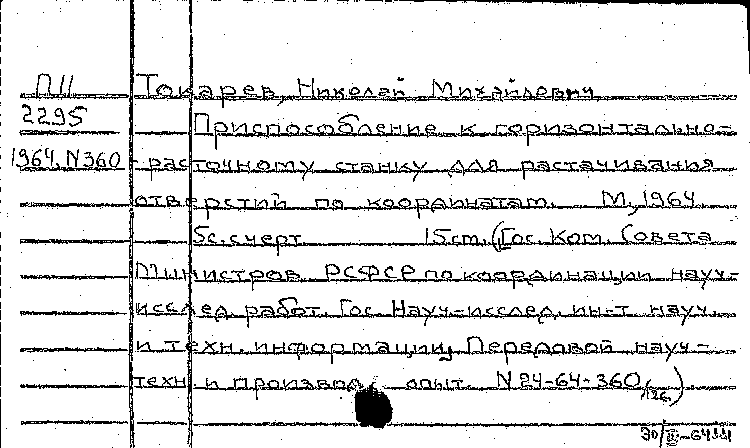 П11
2295
1964, N360
Токарев, Николай Михайлович
Приспособление к горизонтально-
расточному станку для растачивания
отверстий по координатам. М, 1964.
5с. с черт 15см. (Гос. Ком. Совета
Министров РСФСР по координации науч-
исслед. работ. Гос. Науч-исслед. ин-т науч.
и техн. информации, Передовой науч-
техн. и производ. опыт. N24-64-360/126)